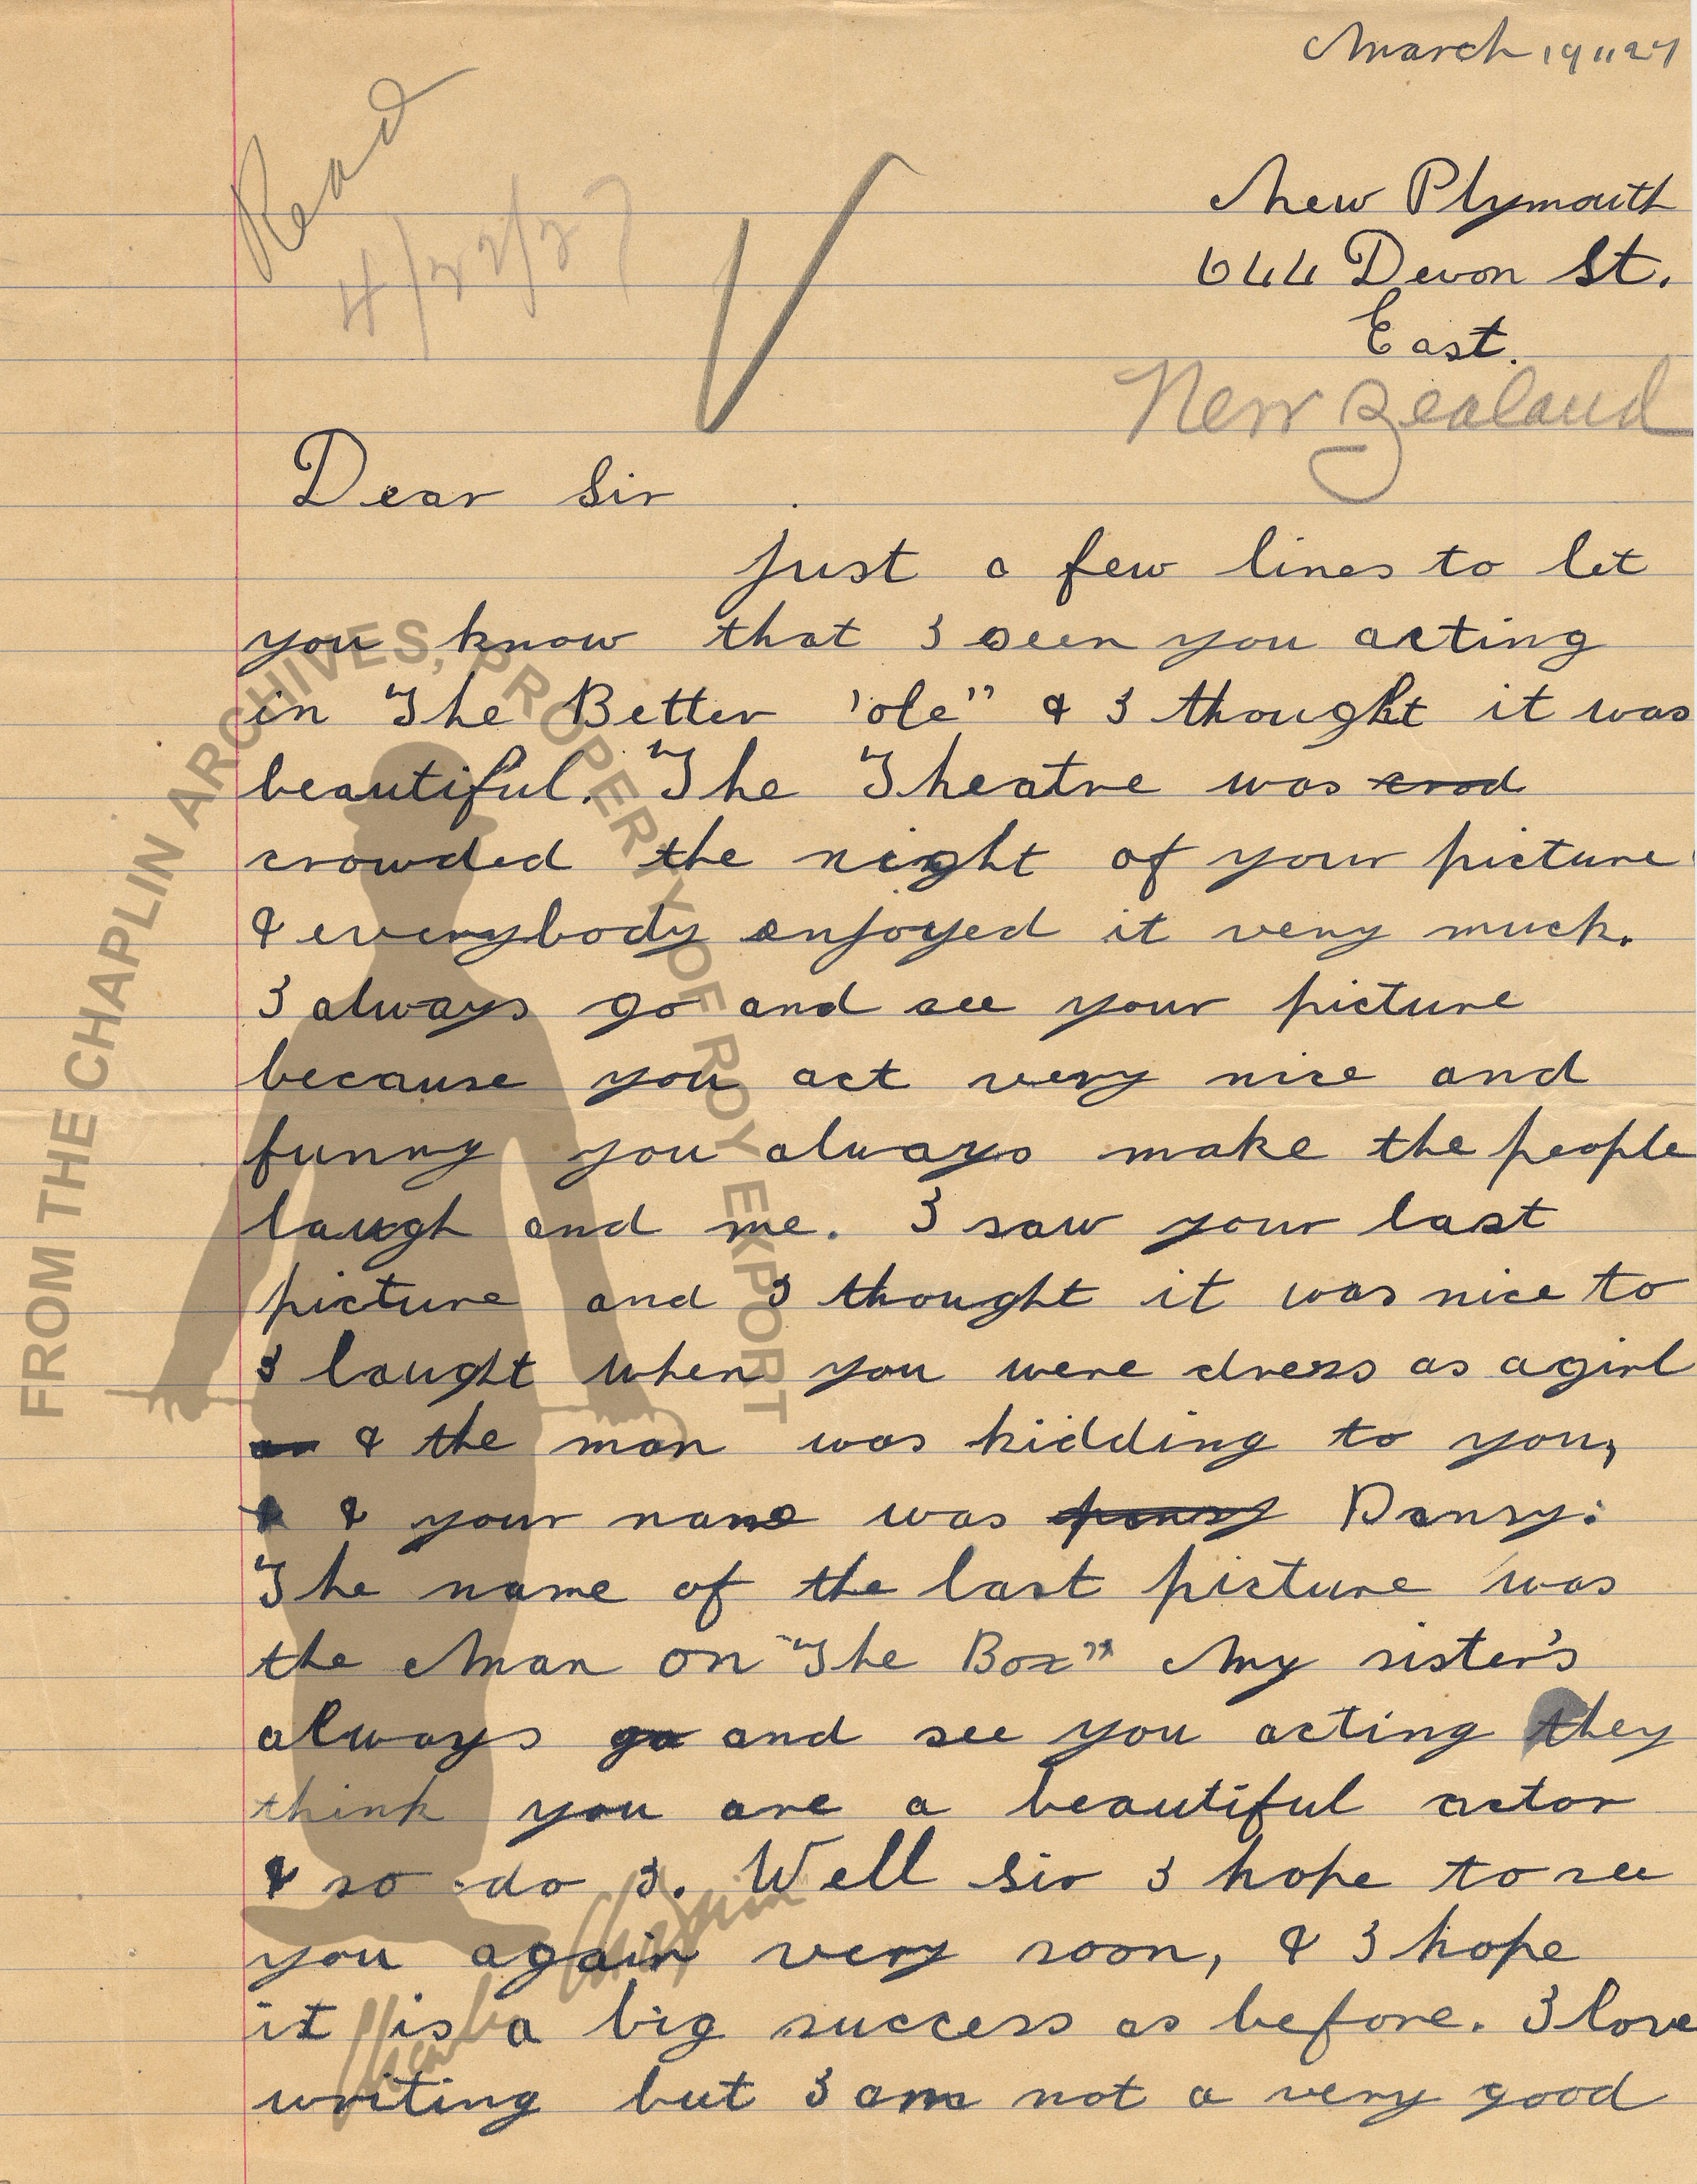 March 19 " 27
Read
4/22/27
New Plymouth
644 Devon St.
East.
New Zealand
Dear Sir
just a few lines to let
you know that I seen you acting
in "The Better 'ole" & I thought it was
beautiful. "The Theatre was crod
crowded the night of your picture
& everybody enjoyed it very much.
I always go and see your picture
because you act very nice and
funny you always make the people
laugh and me. I saw your last
picture and I thought it was nice to
I laught when you were dress as a girl
& the man was kidding to you,
& your name was Danny:
The name of the last picture was
the Man on "The Box" My sister's
always go and see you acting they
think you are a beautiful actor
& so do I. Well Sir I hope to see
you again very soon, & I hope
it is a big success as before. I love
writing but I am not a very good
FROM THE CHAPLIN ARCHIVES, PROPERTY OF ROY EXPORT
Charlie Chaplin